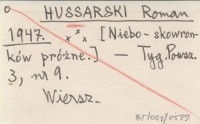 HUSSARSKI Roman
1947. x x x [Niebo - skowron-
ków próżne.] — Tyg. Powsz.
3, nr 9.
Wiersz.
BT/025/0589